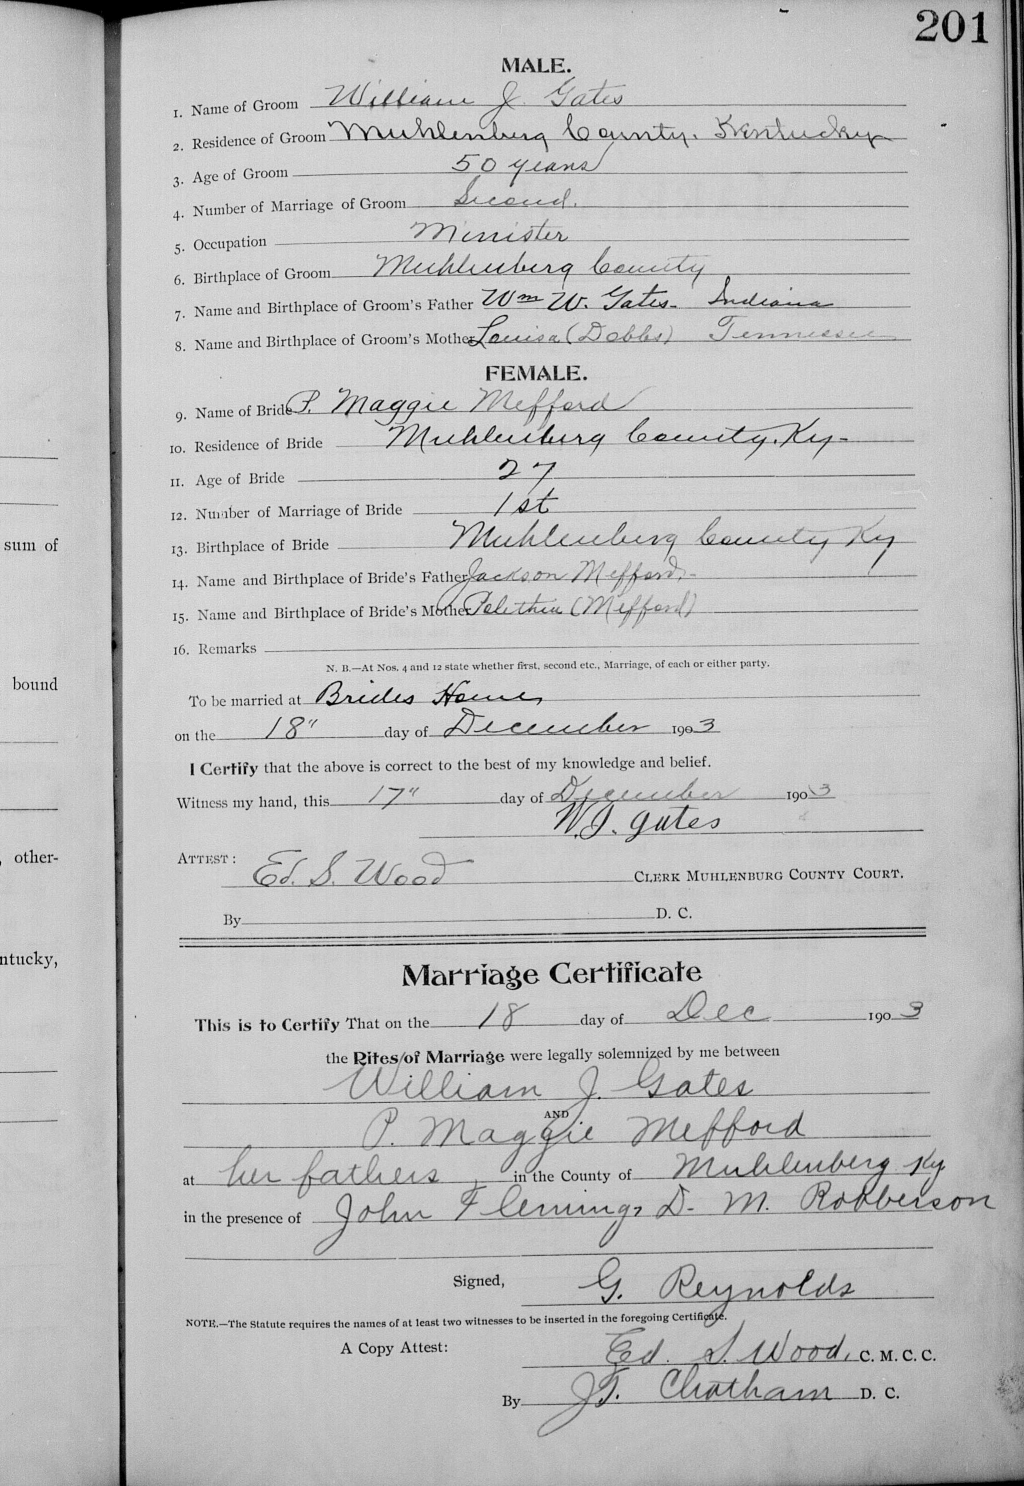 201
MALE.
1. Name of Groom William J. Gates
2. Residence of Groom Muhlenburg County. Kentucky
3. Age of Groom 50 years
4. Number of Marriage of Groom Second.
5. Occupation Minister
6. Birthplace of Groom Muhlenburg County
7. Name and Birthplace of Groom's Father Wm W. Gates- Indiana
8. Name and Birthplace of Groom's Mother Louisa (Dobbs) Tennessee
FEMALE.
9. Name of Bride P. Maggie Mefford
10. Residence of Bride Muhlenburg County, Ky-
11. Age of Bride 27
12. Number of Marriage of Bride 1st
13. Birthplace of Bride Muhlenburg County Ky
14. Name and Birthplace of Bride's Father Jackson Mefford.-
15. Name and Birthplace of Bride's Mother (Mefford)
16. Remarks
N. B.—At Nos. 4 and 12 state whether first, second etc., Marriage, of each or either party.
To be married at Brides Home,
on the 18" day of December 1903
I Certify that the above is correct to the best of my knowledge and belief.
Witness my hand, this 17" day of December 1903
W.J. Gates
ATTEST: Ed. S. Wood CLERK MUHLENBURG COUNTY COURT.
By D. C.
Marriage Certificate
This is to Certify That on the 18 day of Dec 1903
the Rites of Marriage were legally solemnized by me between
William J. Gates
AND
P. Maggie Mefford
at her fathers, in the County of Muhlenberg Ky
in the presence of John Fleming, D. M. Robberson
Signed, G. Reynolds
NOTE.—The Statute requires the names of at least two witnesses to be inserted in the foregoing Certificate.
A Copy Attest: Ed. S. Wood, C. M. C. C.
By J.T. Chatham D. C.
sum of
bound
, other-
ntucky,